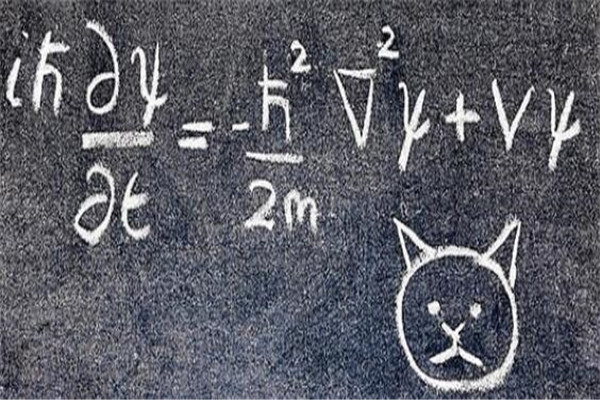 iℏ ∂ψ/∂t = - ℏ²/2m ∇²ψ + Vψ